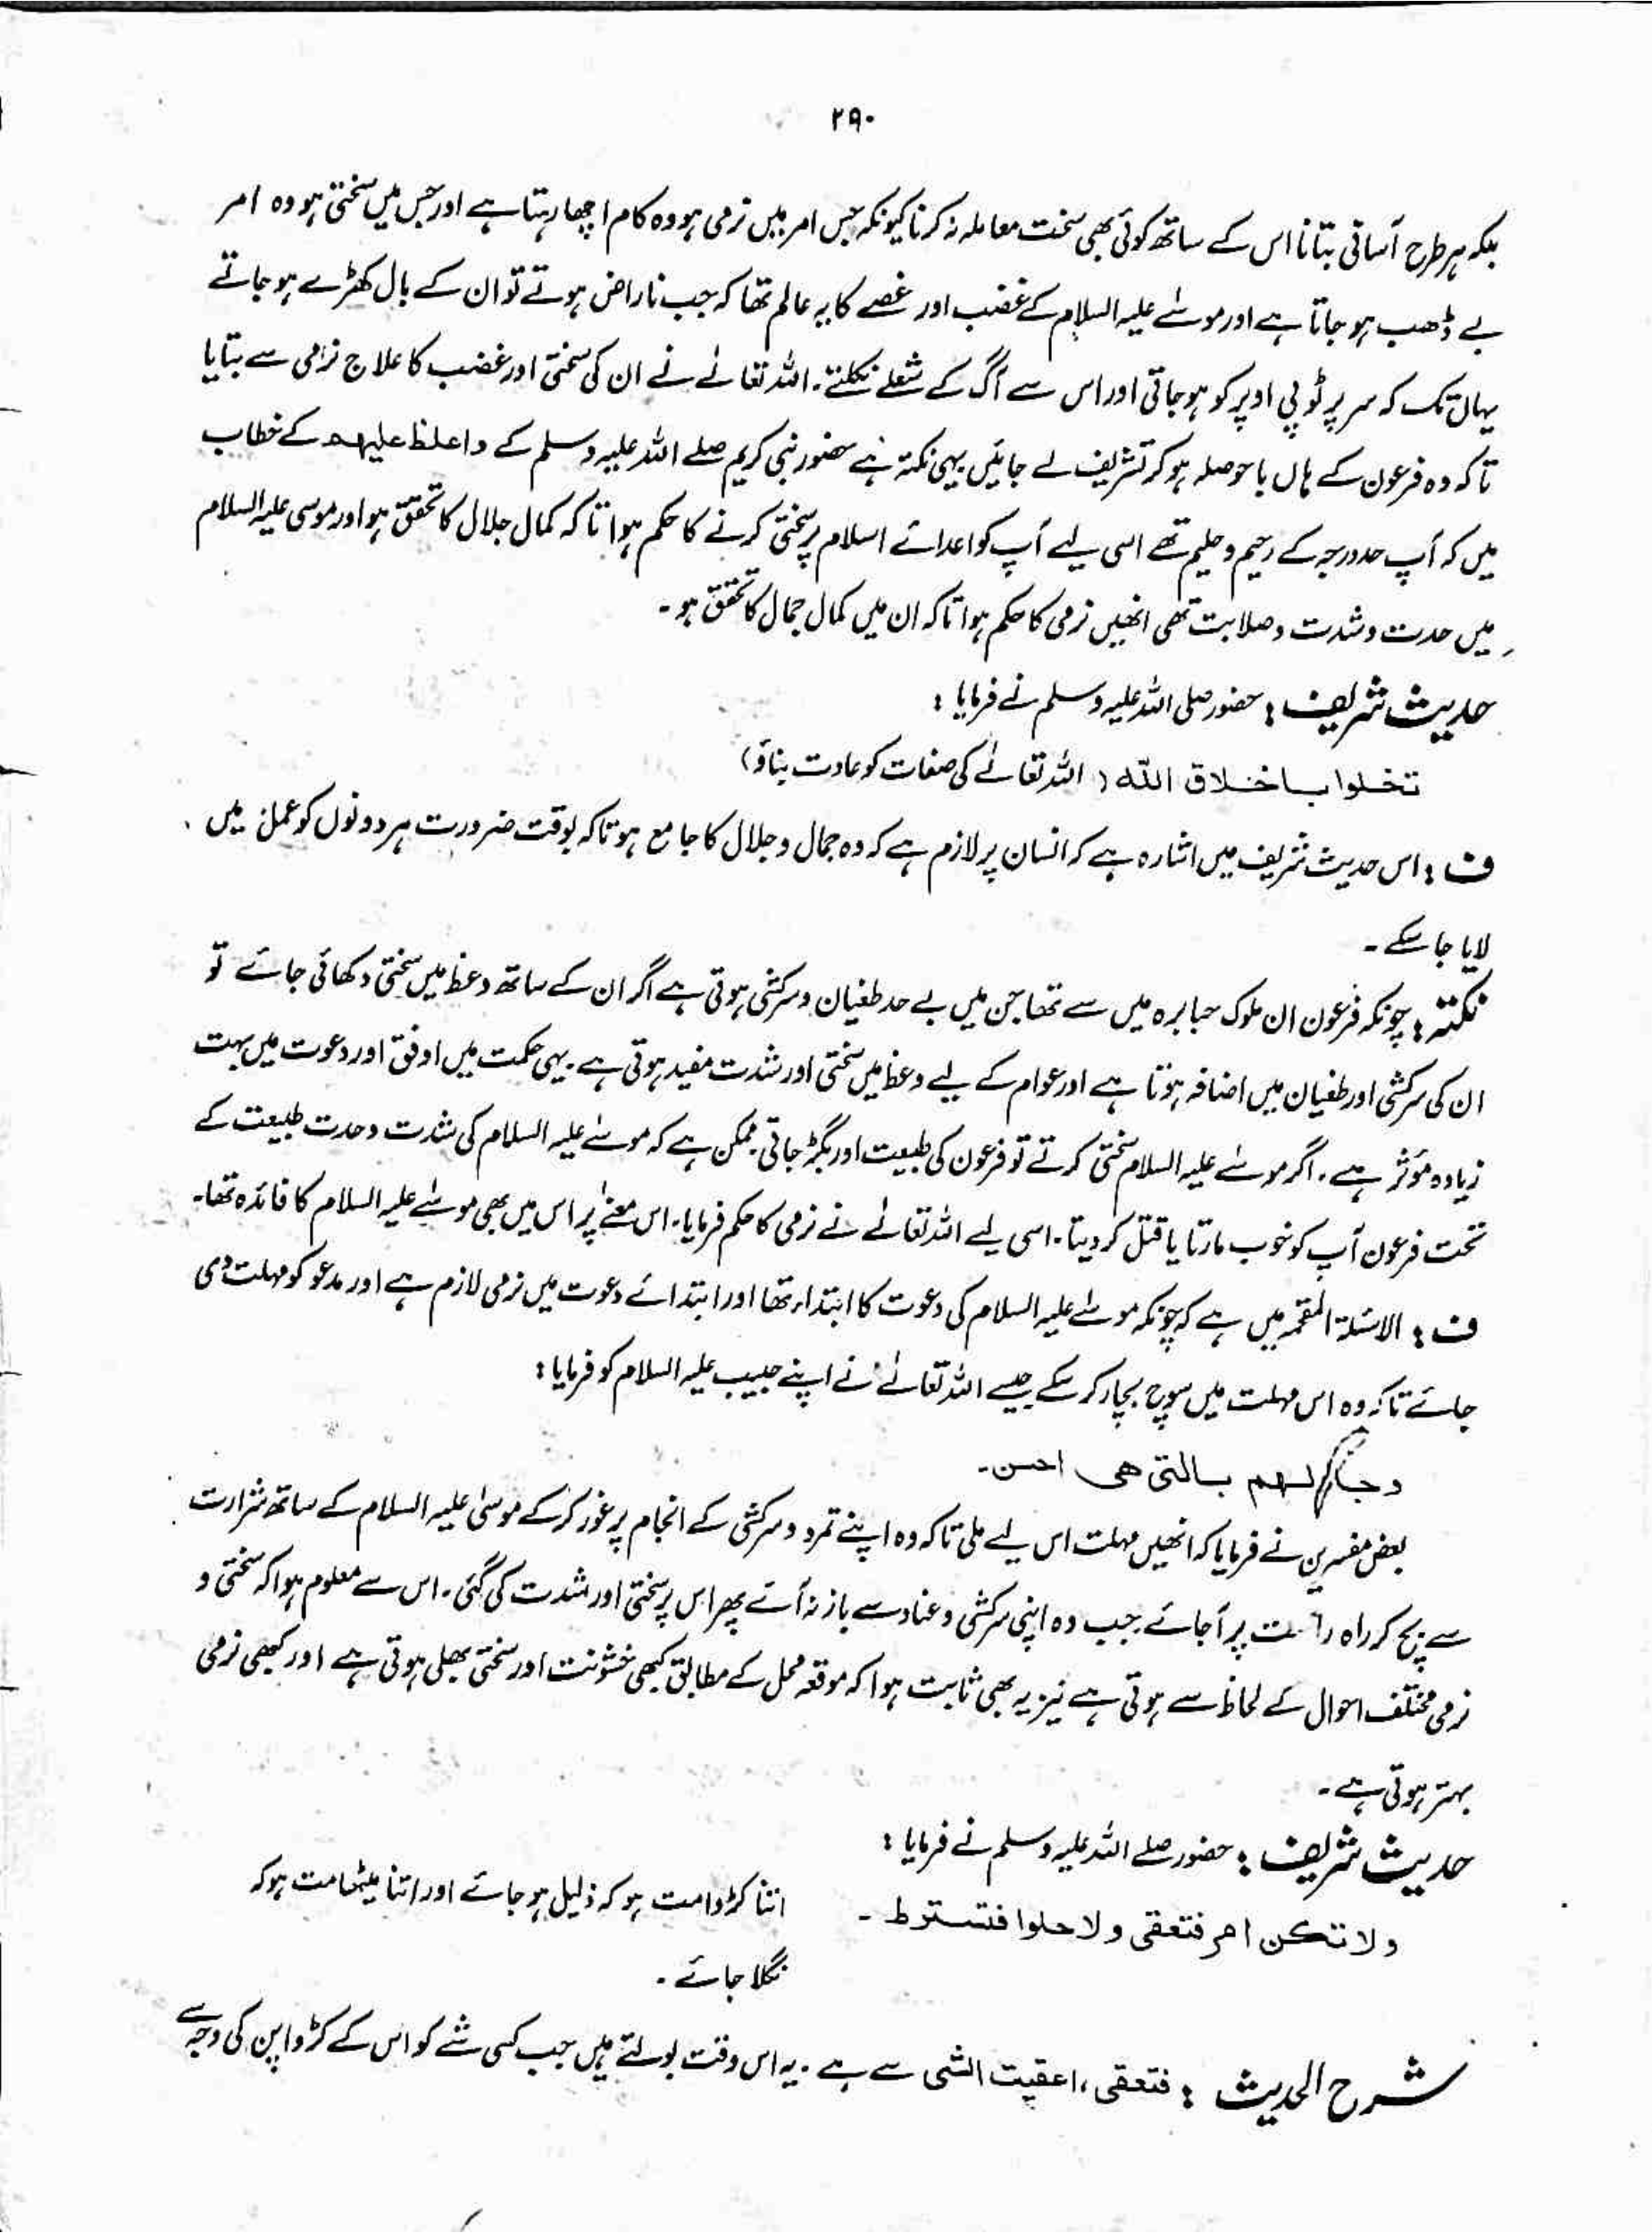 ۲۹۰
بلکہ ہر طرح آسانی بتانا اس کے ساتھ کوئی بھی سخت معاملہ نہ کرنا کیونکہ جس امر میں نرمی ہو وہ کام اچھا رہتا ہے اور جس میں سختی ہو وہ امر
بے ڈھب ہو جاتا ہے اور موسےٰ علیہ السلام کے غضب اور غصے کا یہ عالم تھا کہ جب ناراض ہوتے تو ان کے بال کھڑے ہو جاتے
یہاں تک کہ سر پر ٹوپی اوپر کو ہو جاتی اور اس سے آگ کے شعلے نکلتے۔ اللہ تعالےٰ نے ان کی سختی اور غضب کا علاج نرمی سے بتایا
تاکہ وہ فرعون کے ہاں باحوصلہ ہو کر تشریف لے جائیں یہی نکتہ ہے حضور نبی کریم صلے اللہ علیہ وسلم کے واغلظ علیہم کے خطاب
میں کہ آپ حد درجہ کے رحیم و حلیم تھے اسی لیے آپ کو اعدائے اسلام پر سختی کرنے کا حکم ہوا تاکہ کمال جلال کا تحقق ہو اور موسی علیہ السلام
میں حدت و شدت و صلابت تھی انھیں نرمی کا حکم ہوا تاکہ ان میں کمال جمال کا تحقق ہو۔
حدیث شریف : حضور صلی اللہ علیہ وسلم نے فرمایا :
تخلوا باخلاق اللہ ( اللہ تعالےٰ کی صفات کو عادت بناؤ)
ف : اس حدیث شریف میں اشارہ ہے کہ انسان پر لازم ہے کہ وہ جمال و جلال کا جامع ہو تاکہ بوقت ضرورت ہر دونوں کو عمل میں
لایا جا سکے ۔
نکتہ : چونکہ فرعون ان ملوک جبابرہ میں سے تھا جن میں بے حد طغیان و سرکشی ہوتی ہے اگر ان کے ساتھ وعظ میں سختی دکھائی جائے تو
ان کی سرکشی اور طغیان میں اضافہ ہوتا ہے اور عوام کے لیے وعظ میں سختی اور شدت مفید ہوتی ہے۔ یہی حکمت میں اوفق اور دعوت میں بہت
زیادہ مؤثر ہے ۔ اگر موسےٰ علیہ السلام سختی کرتے تو فرعون کی طبیعت اور بگڑ جاتی۔ ممکن ہے کہ موسےٰ علیہ السلام کی شدت و حدت طبیعت کے
تحت فرعون آپ کو خوب مارتا یا قتل کر دیتا ۔ اسی لیے اللہ تعالےٰ نے نرمی کا حکم فرمایا۔ اس معنےٰ پر اس میں بھی موسےٰ علیہ السلام کا فائدہ تھا۔
ف : الاسئلۃ المقحمہ میں ہے کہ چونکہ موسےٰ علیہ السلام کی دعوت کا ابتداء تھا اور ابتدائے دعوت میں نرمی لازم ہے اور مدعو کو مہلت دی
جائے تاکہ وہ اس مہلت میں سوچ بچار کر سکے جیسے اللہ تعالےٰ نے اپنے حبیب علیہ السلام کو فرمایا :
وجادلہم بالتی ھی احسن ۔
بعض مفسرین نے فرمایا کہ انھیں مہلت اس لیے ملی تاکہ وہ اپنے تمرد و سرکشی کے انجام پر غور کر کے موسیٰ علیہ السلام کے ساتھ شرارت
سے بچ کر راہ راست پر آ جائے جب وہ اپنی سرکشی و عناد سے باز نہ آئے پھر اس پر سختی اور شدت کی گئی ۔ اس سے معلوم ہوا کہ سختی و
نرمی مختلف احوال کے لحاظ سے ہوتی ہے نیز یہ بھی ثابت ہوا کہ موقعہ محل کے مطابق کبھی خشونت اور سختی بھلی ہوتی ہے اور کبھی نرمی
بہتر ہوتی ہے ۔
حدیث شریف : حضور صلے اللہ علیہ وسلم نے فرمایا :
ولا تکن امر فتعقی ولا حلوا فتسترط ۔ اتنا کڑوا مت ہو کہ ذلیل ہو جائے اور اتنا میٹھا مت ہو کہ
نگلا جائے ۔
شرح الحدیث : فتعقی ، اعقیت الشی سے ہے ۔ یہ اس وقت بولتے ہیں جب کسی شے کو اس کے کڑواپن کی وجہ سے